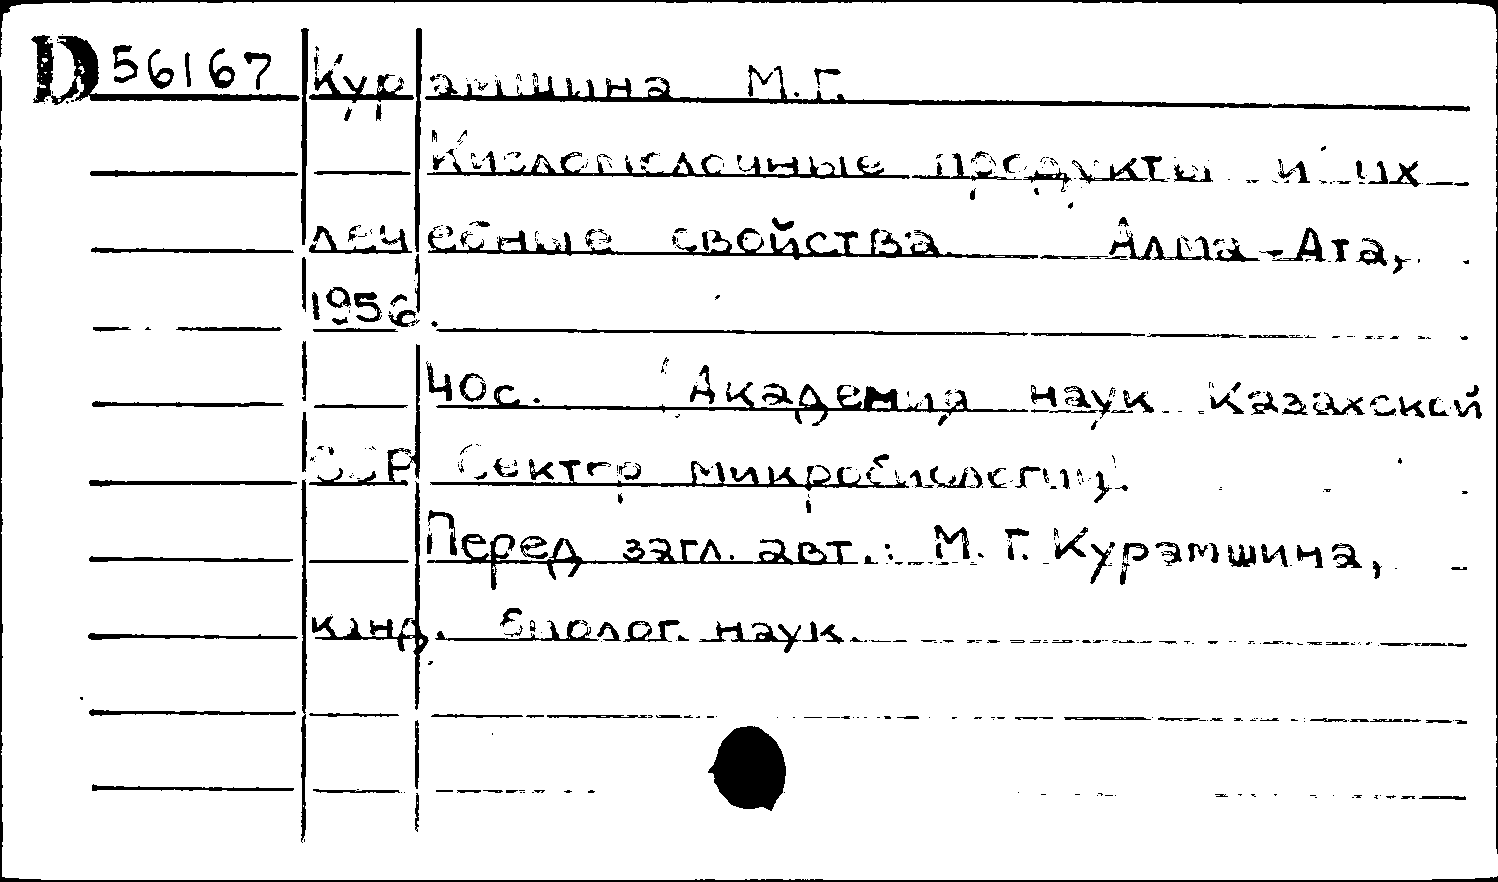 D56167 Курамшина М.Г.
Кисломолочные продукты и их
лечебные свойства Алма-Ата,
1956.
40с. Академия наук Казахской
ССР Сектор микробиологии.
Перед загл. авт.: М. Г. Курамшина,
канд. биолог. наук.